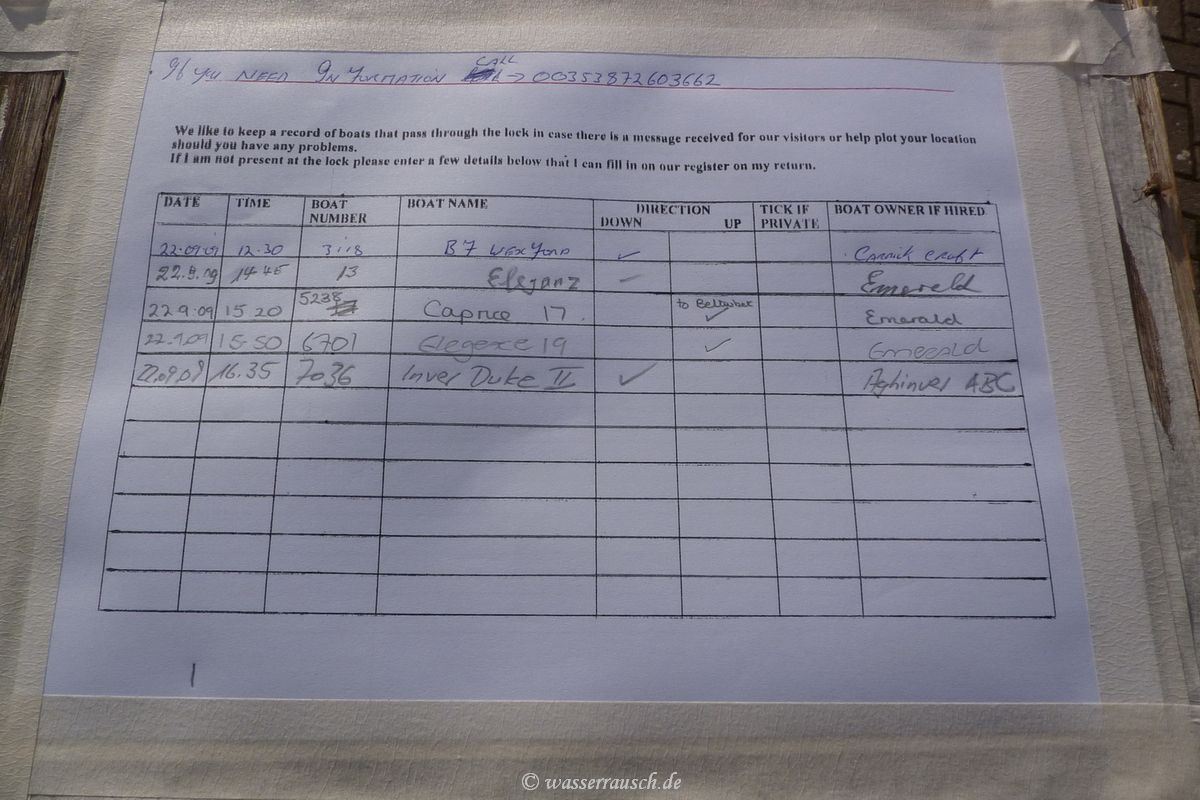 If you NEED INFORMATION CALL → 00353872603662
We like to keep a record of boats that pass through the lock in case there is a message received for our visitors or help plot your location
should you have any problems.
If I am not present at the lock please enter a few details below that I can fill in on our register on my return.
DATE TIME BOAT NUMBER BOAT NAME DIRECTION DOWN UP TICK IF PRIVATE BOAT OWNER IF HIRED
22.09.09 12.30 3118 B7 WEXFORD ✓ Carrick Craft
22.9.09 14 45 13 Eleganz – Emerald
22.9.09 15 20 5238 Caprice 17. to Belturbet ✓ Emerald
22.9.09 15-50 6701 Elegence 19 ✓ Emerald
22.09.09 16.35 7036 Inver Duke II ✓ Aghinver ABC
© wasserrausch.de